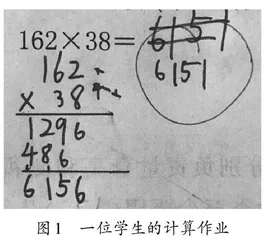 162×38= 6151
6151
162
× 38
1296
486
6156
图1 一位学生的计算作业